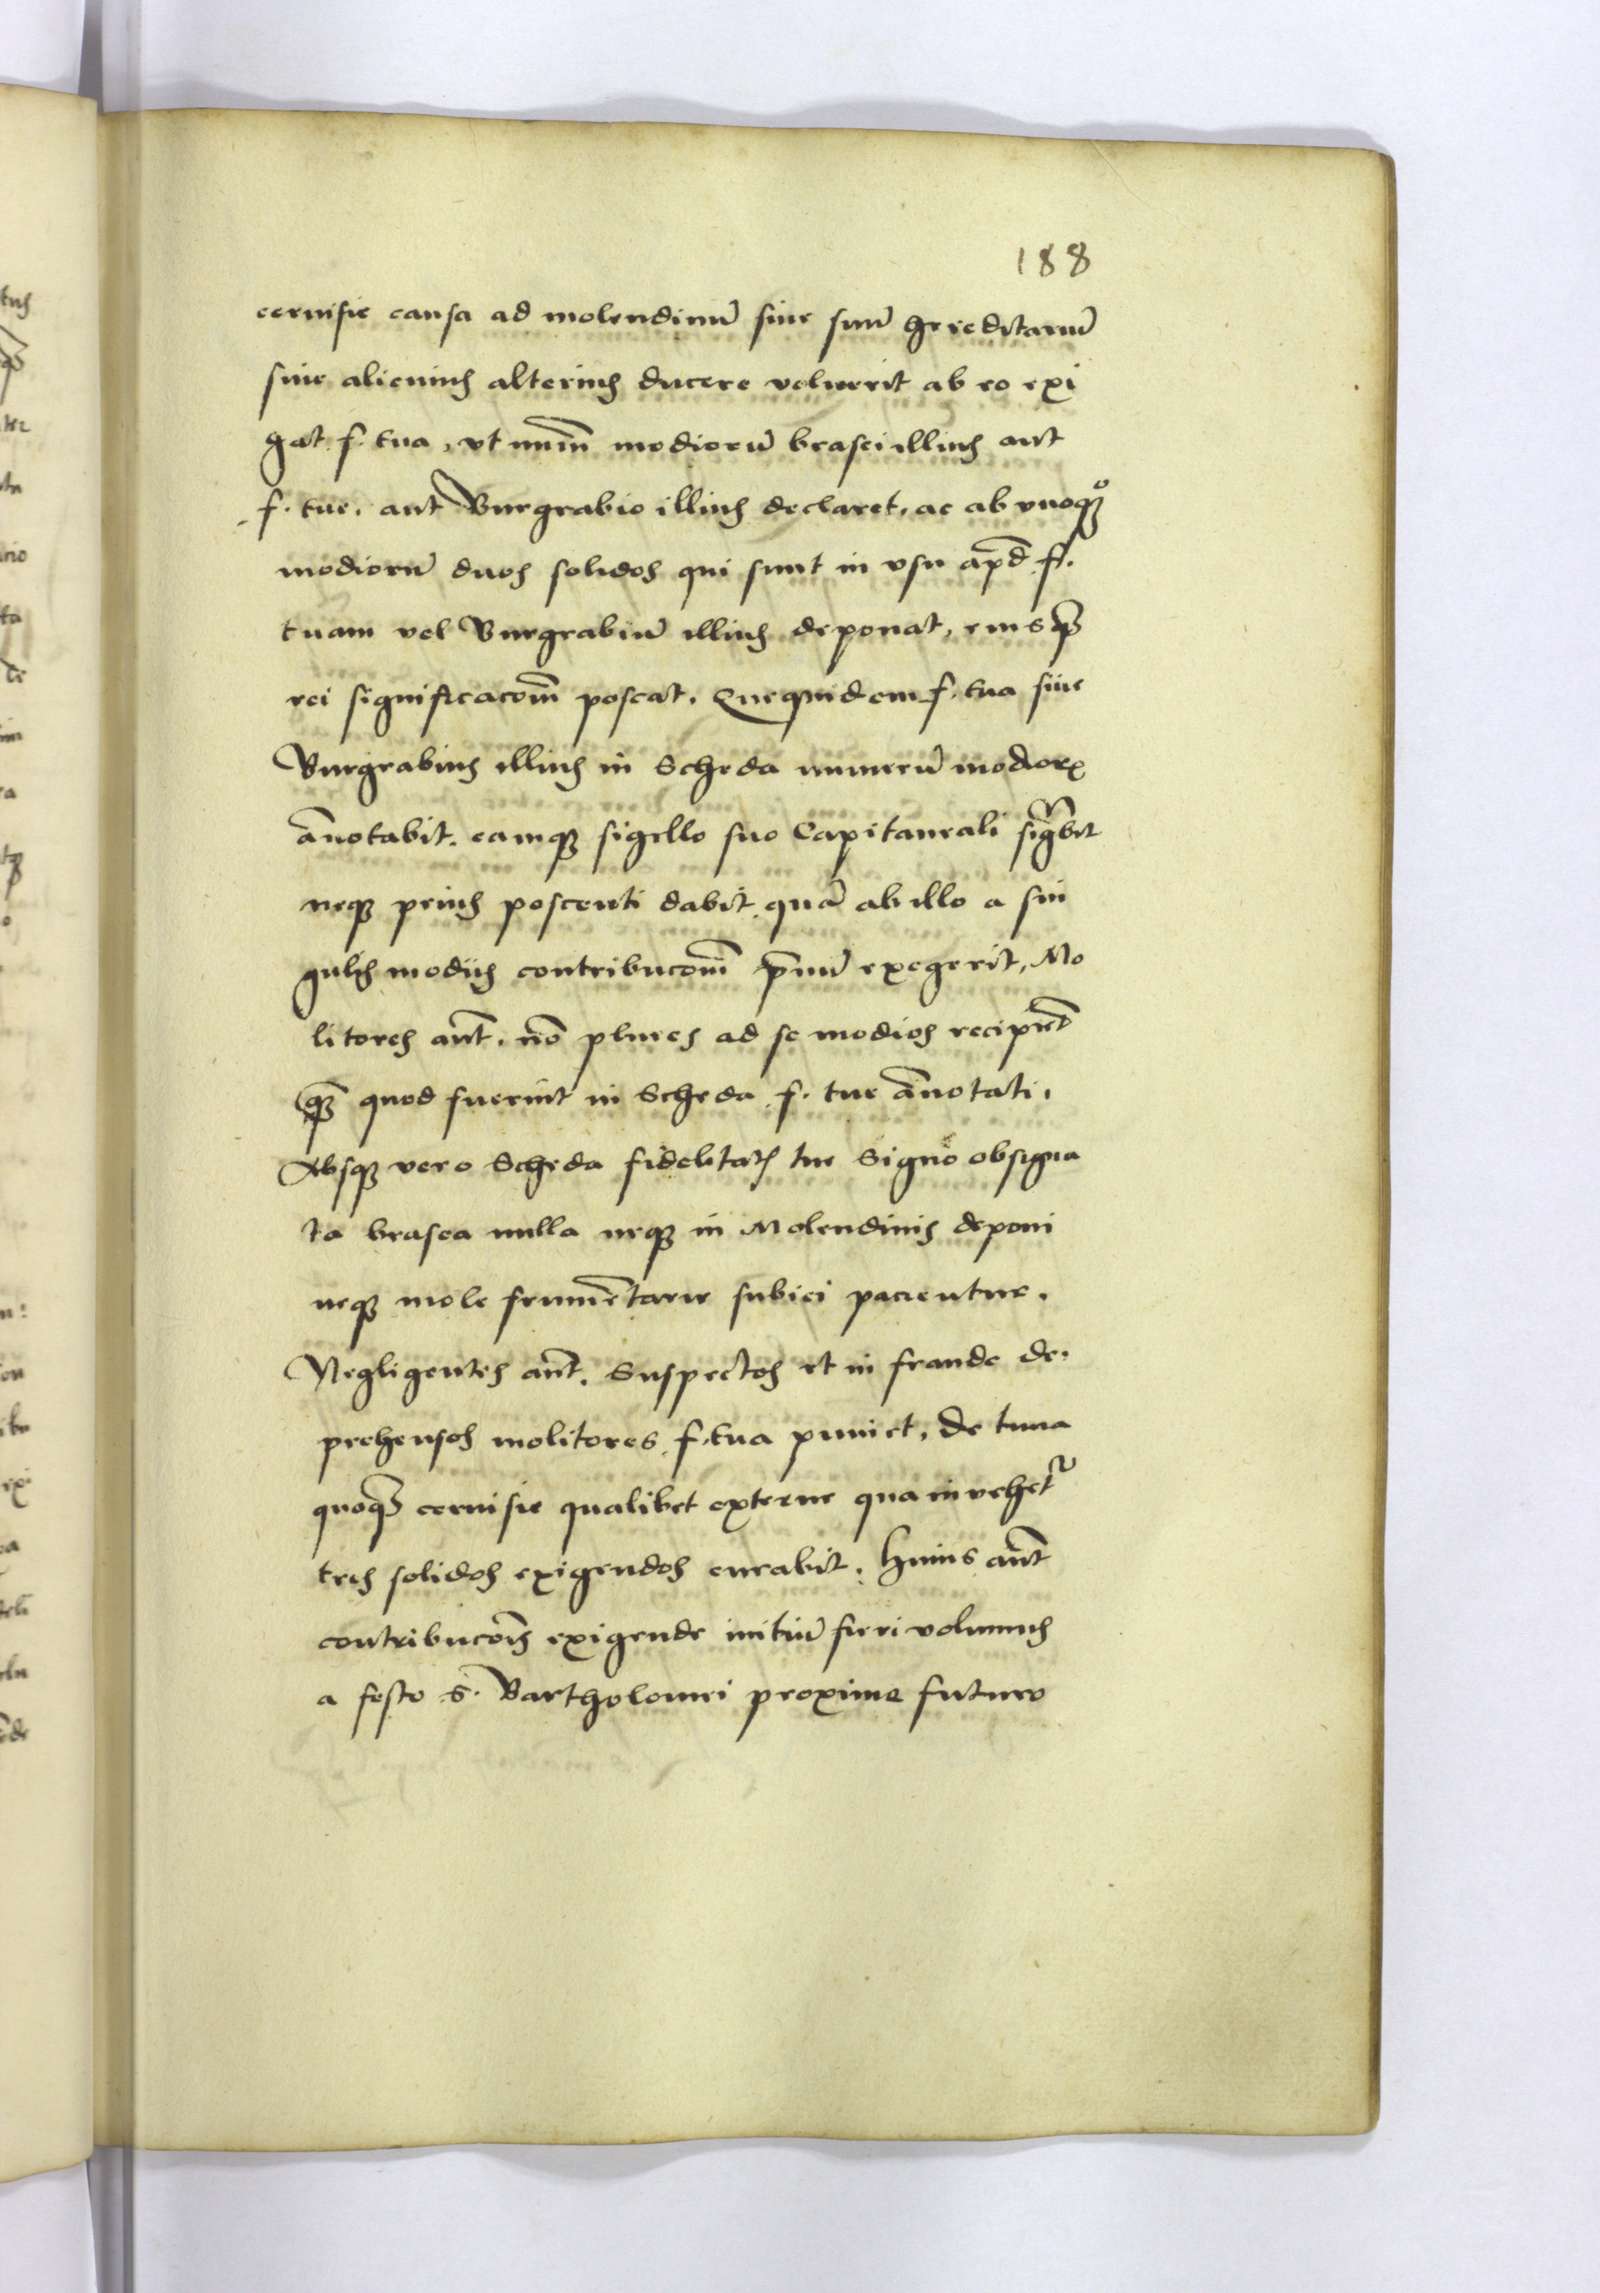 188
cervisie causa ad molendinū sive suū hereditariū
sive alicuius alterius ducere voluerit ab eo exi
gat f. tua, vt num̄ modiorū brasei illius aut
f. tue. aut Burgrabio illius declaret. ac ab vnoq₃º
modiorū duos solidos qui sunt in vsu apd̄ f.
tuam vel Burgrabiū illius deponat, eiusq₃
rei significacom̄ poscat. Quequidem f. tua sive
Burgrabius illius in Scheda numerū modiorꝝ
ānotabit. eamq₃ sigillo suo Capitaneali sigḃit
neq₃ prius poscenti dabit quā ab illo a sin
gulis modiis contribucom̄ p̄mū exegerit, Mo
litores aūt. nō plures ad se modios recipiēt
q₃ quod fuerint in Scheda f. tue ānotati.
Absq₃ vero Scheda fidelitatꝭ tue Signo obsigna
ta brasea nulla neq₃ in Molendinis deponi
neq₃ mole frumētarie subiici pacientur.
Negligentes aūt. Suspectos et in fraude de.
prehensos molitores f. tua puniet. De tuna
quoq₃ cervisie qualibet externe qua invehetᷣ
tres solidos exigendos curabit. Huius aūt
contribucōis exigende initiū fieri volumus
a festo S. Bartholomei proxime futuro